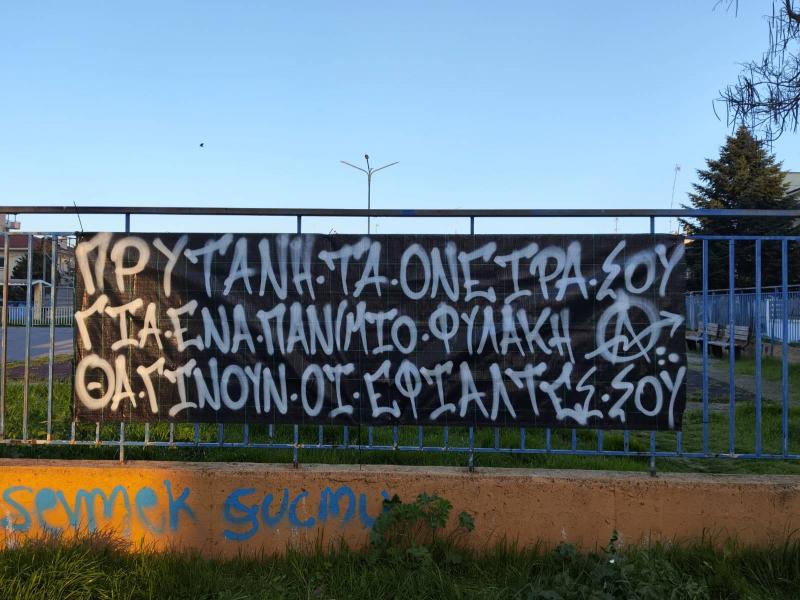 ΠΡΥΤΑΝΗ·ΤΑ·ΟΝΕΙΡΑ·ΣΟΥ
ΓΙΑ·ΕΝΑ·ΠΑΝ/ΜΙΟ·ΦΥΛΑΚΗ
ΘΑ·ΓΙΝΟΥΝ·ΟΙ·ΕΦΙΑΛΤΕΣ·ΣΟΥ
sevmek suçmu